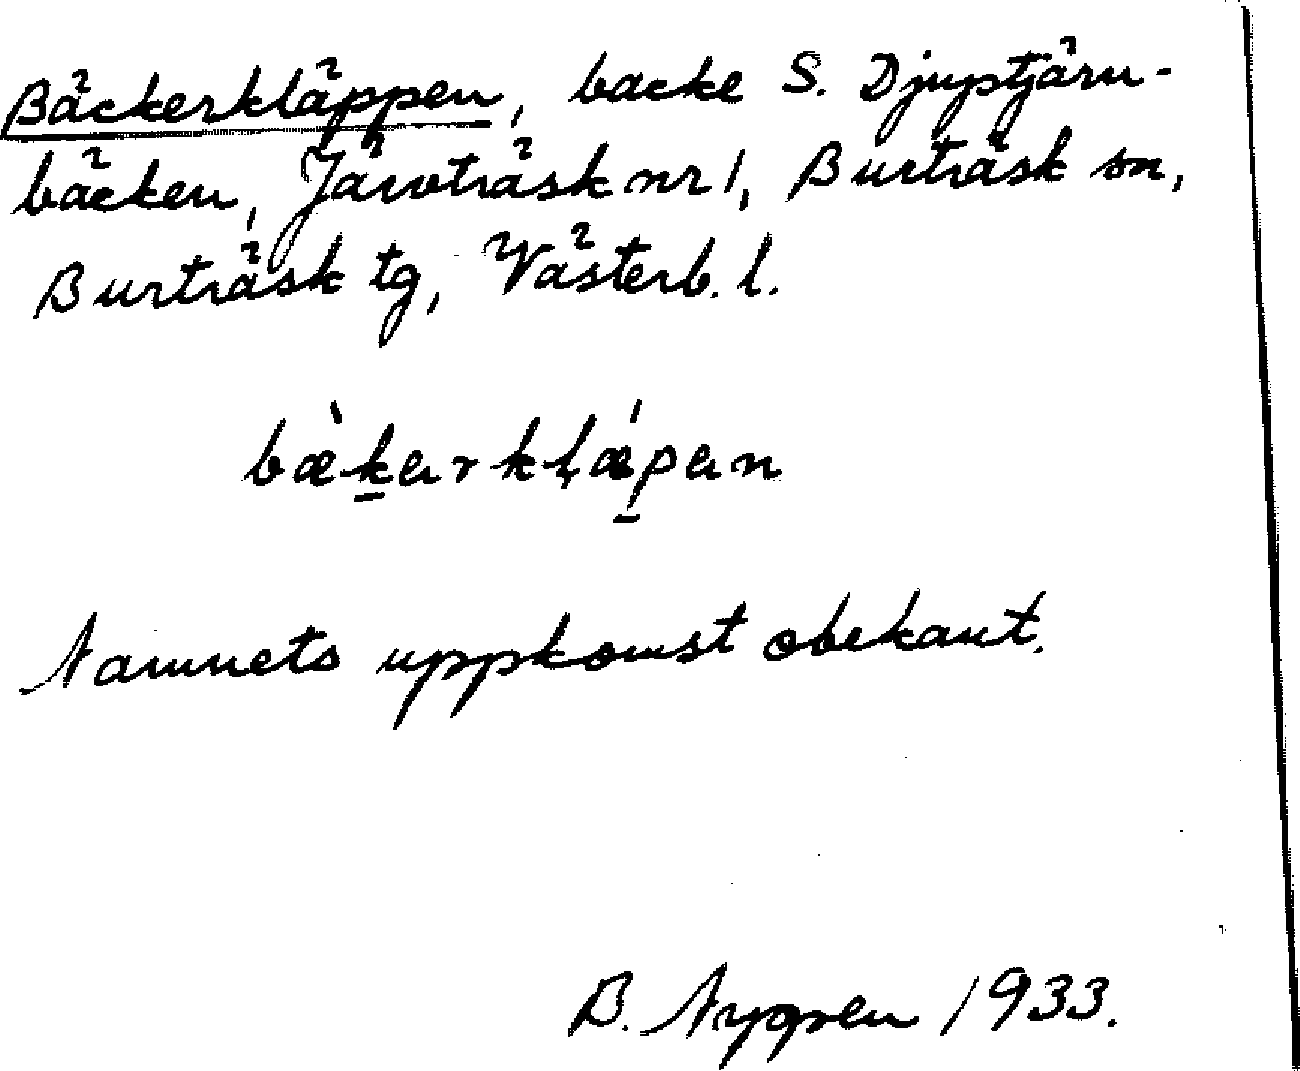 Bäckerkläppen, backe S. Djuptjärn-
bäcken, Järvträsk nr 1, Burträsk sn,
Burträsk tg, Västerb. l.
bæ̀k̠arkļǽp̠an
Namnets uppkomst obekant.
B. Nygren 1933.